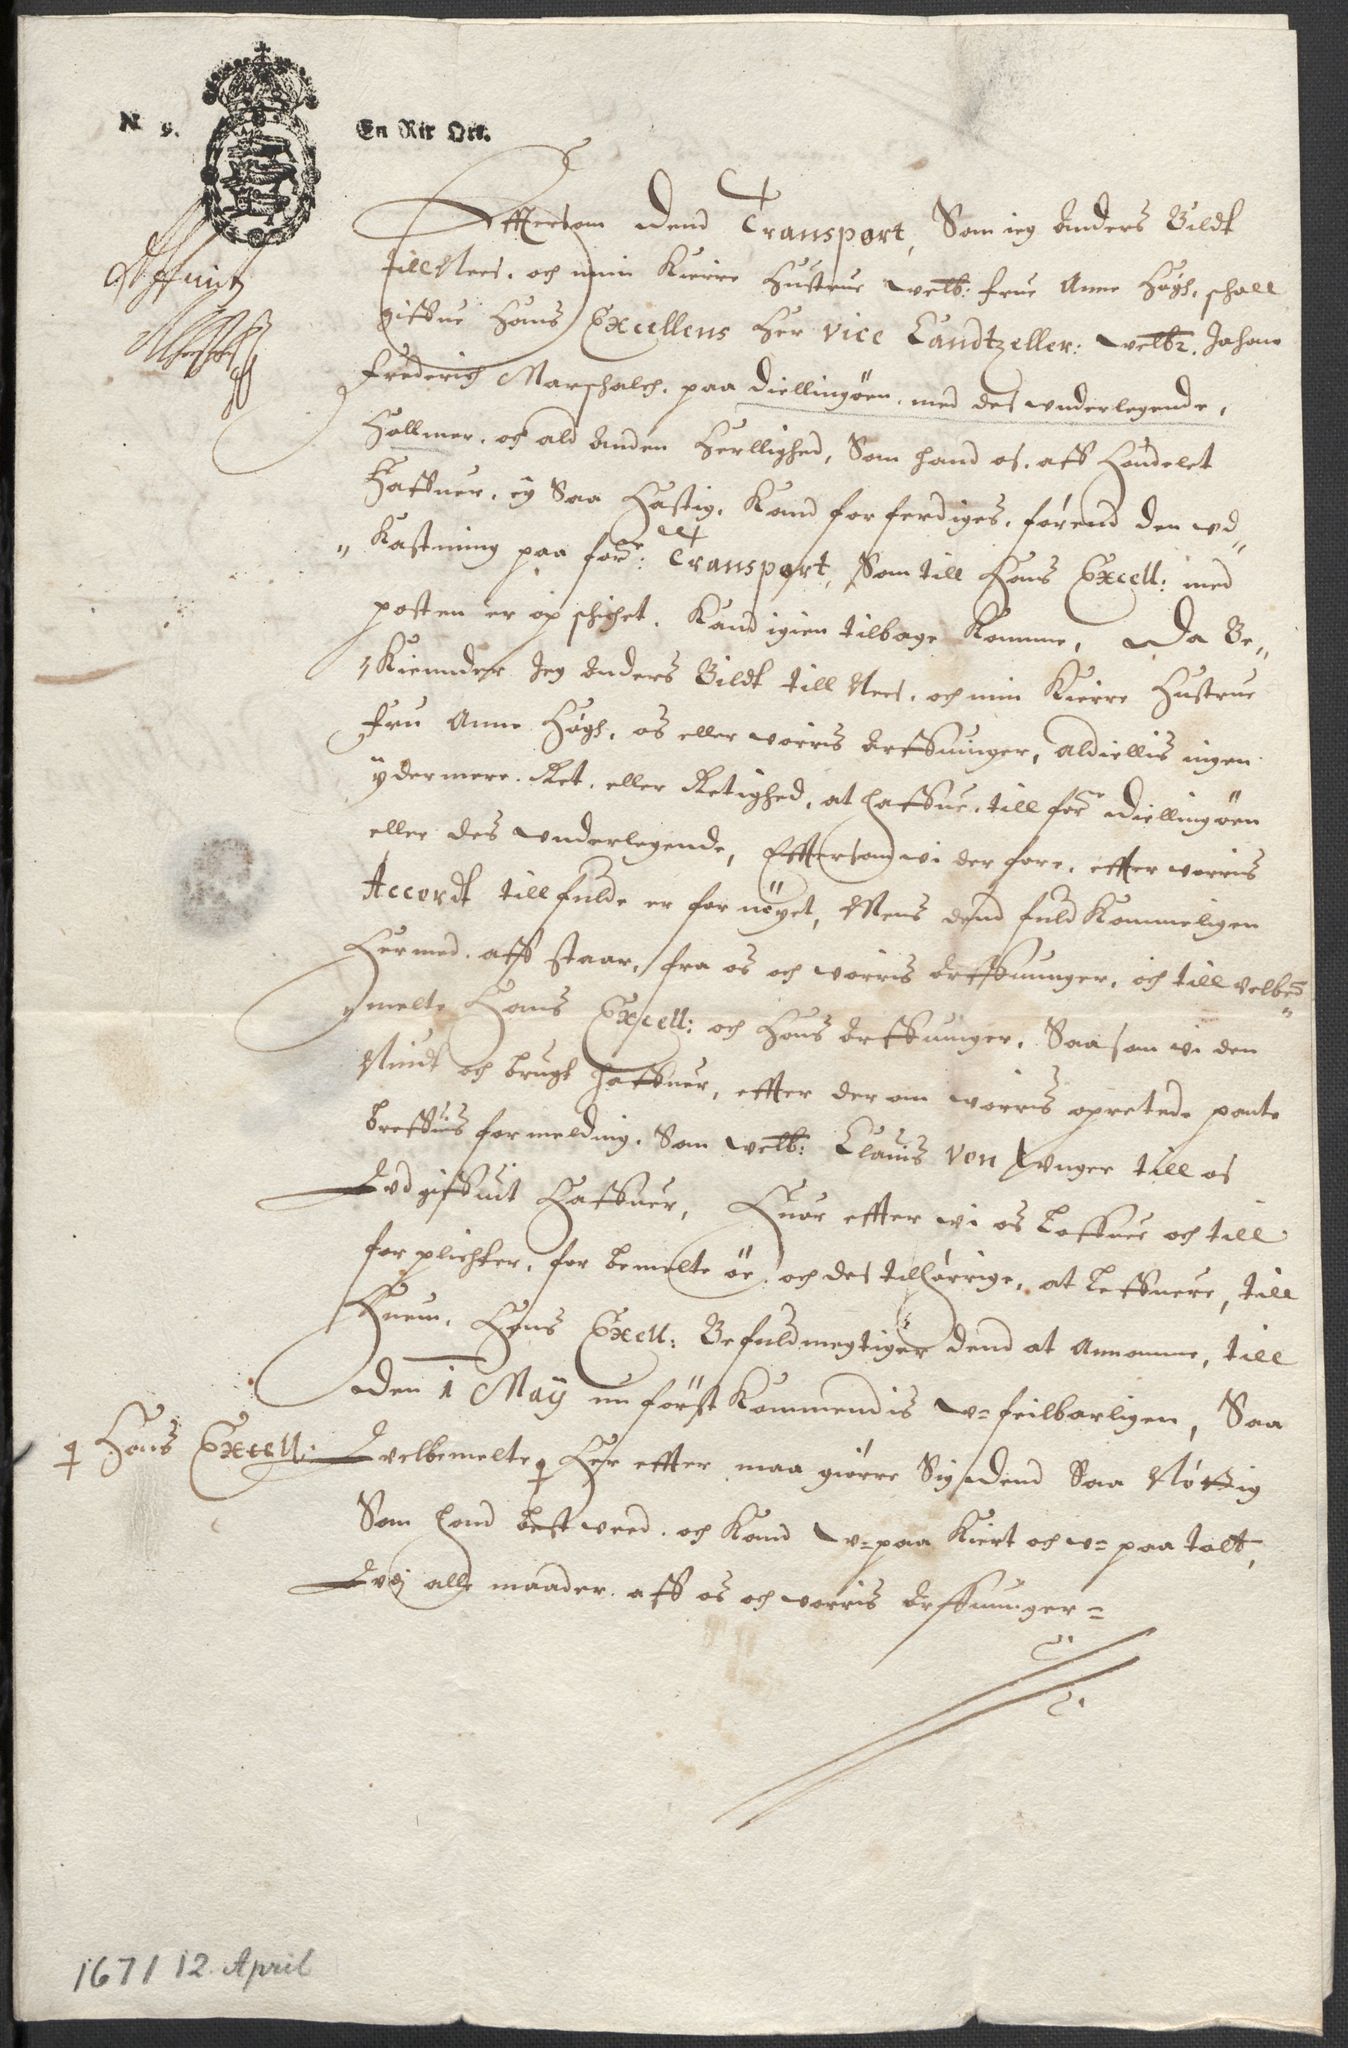 N 9. En Rix Ort.
Efftersom dend Transport, Som ieg Anders Bildt
till Nees. och min Kierre Hustrue welb: frue Anne Høgh, schall
giffue Hans Excellens Her vice Candtzeller: welbr. Johann
Frederich Marschalch. paa Diellingöen, med des vnderlegende,
Hollmer. och ald Anden Herllighed, Som hand os. aff Handelet
Haffuer, ey Saa Hastig. Kand forferdiges. førend den vd„
„Kastning paa forne: Transport, Som till Hans Excell: med
posten er op schichet. Kand igien tilbage Komme, Da Be„
„Kiennder Jeg Anders Bildt till Nees. och min Kierre Hustrue
Fru Anne Høgh, os eller worris Arffuinger, aldiellis ingen
ÿdermere. Ret. eller Retighed, at haffue, till forne Diellingöen
eller des vnderlegende, Efftersom wi der fore, effter worris
Accordt till fulde er fornöyet, Mens dend fuldKommeligen
Hermed. aff staar, fra os och worris Arffuinger, och till velbe„
„melte Hans Excell: och Hans Arffuinger, Saasom wi den
Niudt och brugt haffuer, effter der om worris opretede pante
breffuis formelding. Som welb: Clauis von Vnger till os
Vdgiffuit Haffuer, Huor effter wi os loffuer och till
forplichter, for bemelte öe och des tilhørrige, at leffuere, till
Huem. Hans Excell: Befuldmegtiger dend at Annamme, till
den 1 Maÿ nu først Kommendis v=feilbarligen, Saa
Hans Excell: velbemelte Her effter maa giørre Sig dend Saa Nøttig
Som hand best weed. och Kand v=paa Kiert och v=paa talt,
Vdj alle maader. aff os och worris Arffuinger=
1671 12. April